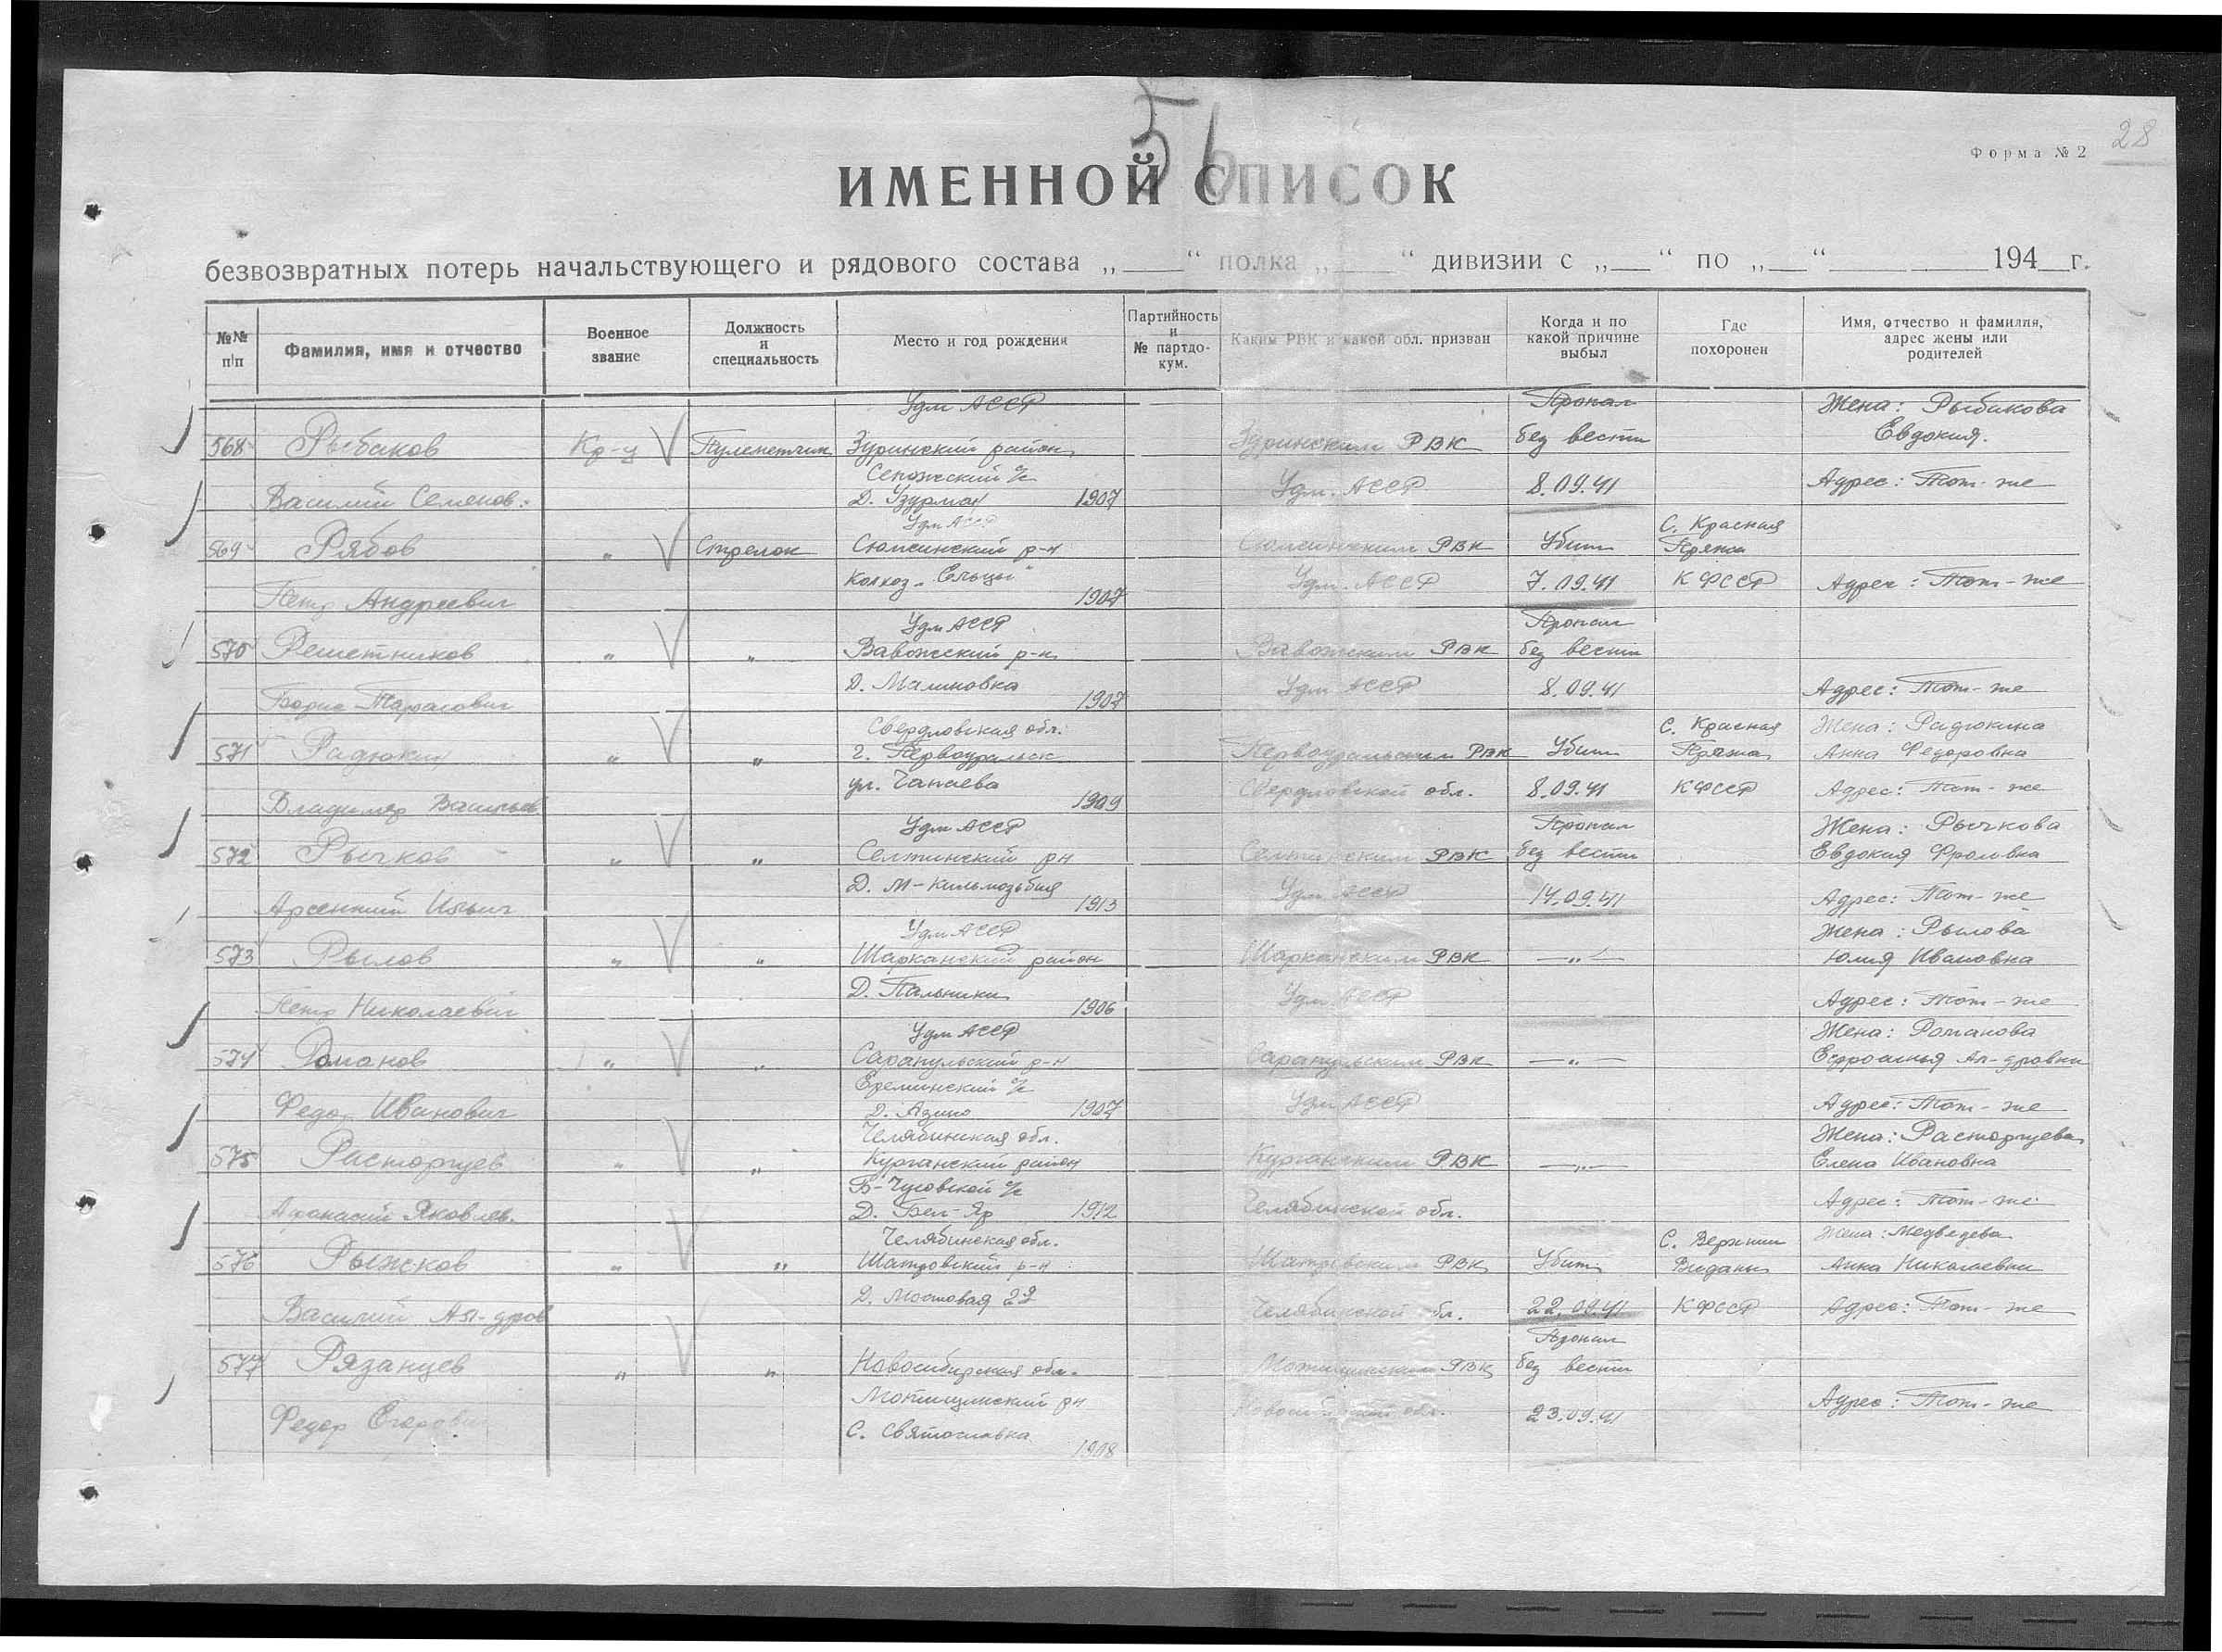 56
28
Форма № 2
ИМЕННОЙ СПИСОК
безвозвратных потерь начальствующего и рядового состава „___“ полка „___“ дивизии с „__“ по „__“ ______ 194__г.
№№ п/п
Фамилия, имя и отчество
Военное звание
Должность и специальность
Место и год рождения
Партийность и № партдокум.
Каким РВК и какой обл. призван
Когда и по какой причине выбыл
Где похоронен
Имя, отчество и фамилия, адрес жены или родителей
Удм АССР Пропал Жена: Рыбакова
568 Рыбаков Кр-ц Пулеметчик Зуринский район Зуринским РВК без вести Евдокия.
Сепожский с/с
Василий Семенов. Д. Узурмон 1907 Удм. АССР 8.09.41 Адрес: Тот-же
Удм АССР С. Красная
569 Рябов " Стрелок Сюмсинский р-н Сюмсинским РВК Убит Пряжа
Колхоз „Ельцы" Удм. АССР 7.09.41 КФССР Адрес: Тот-же
Петр Андреевич 1907
Удм АССР Пропал
570 Решетников " " Вавожский р-н Вавожским РВК без вести
Д. Малиновка Удм АССР 8.09.41 Адрес: Тот-же
Борис Тарасович 1907
Свердловская обл. С. Красная Жена: Радюкина
571 Радюкин " " г. Первоуральск Первоуральским РВК Убит Пряжа Анна Федоровна
ул. Чапаева Свердловской обл. 8.09.41 КФССР Адрес: Тот-же
Владимир Васильев 1909
Удм АССР Пропал Жена: Рычкова
572 Рычков " " Селтинский рн Селтинским РВК без вести Евдокия Фроловна
Д. М-Кильмозьбия Удм АССР 14.09.41 Адрес: Тот-же
Арсентий Ильич 1913
Удм АССР Жена: Рылова
573 Рылов " " Шарканский район Шарканским РВК —"— Юлия Ивановна
Д. Пальники Удм АССР Адрес: Тот-же
Петр Николаевич 1906
Удм АССР Жена: Романова
574 Романов " " Сарапульский р-н Сарапульским РВК —"— Ал-дровна
Ереминский с/с
Федор Иванович Д. Азино 1907 Удм АССР Адрес: Тот-же
Челябинская обл. Жена: Расторгуева
575 Расторгуев " " Курганский район Курганским РВК —"— Елена Ивановна
Б-Чусовской с/с
Афанасий Яковлев. Д. Бел-Яр 1912 Челябинской обл. Адрес: Тот-же
Челябинская обл. С. Верхнии Жена: Медведева
576 Рыжков " " Шатровский р-н Шатровским РВК Убит Виданы Анна Николаевна
Василий Ал-дров Д. Мостовая 22 Челябинской обл. 22.09.41 КФССР Адрес: Тот-же
Пропал
577 Рязанцев " " Новосибирская обл. РВК без вести
рн Новосибирской обл. 23.09.41 Адрес: Тот-же
Федор Егорович С. Святославка 1908